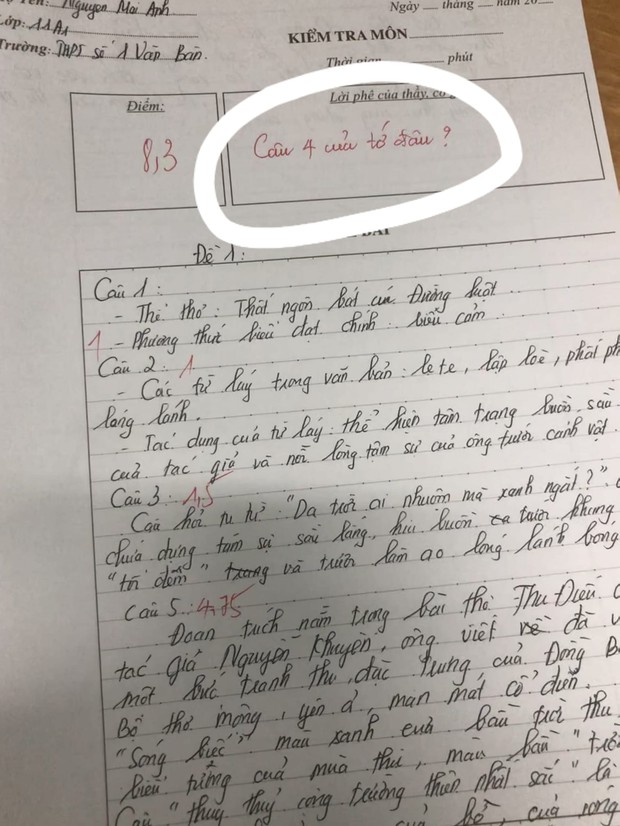 Tên: Nguyen Mai Anh
Lớp: 11A1
Trường: THPT số 1 Văn Bàn.
Ngày tháng năm 20
KIỂM TRA MÔN
Thời gian phút
Điểm:
8,3
Lời phê của thầy, cô
Câu 4 của tớ đâu?
BÀI
Đề 1:
Câu 1:
- Thể thơ: Thất ngôn bát cú Đường luật
1 - Phương thức biểu đạt chính: biểu cảm
Câu 2: 1
- Các từ láy trong văn bản: le te, lập loè, phất ph
lóng lánh.
- Tác dụng của từ láy: thể hiện tâm trạng buồn, sầu
của tác giả và nỗi lòng tâm sự của ông trước cảnh vật.
Câu 3: 1,5
Câu hỏi tu từ: "Da trời ai nhuộm mà xanh ngắt?".
chứa đựng tâm sự sâu lắng, hiu buồn trước khung
"tối đêm" và trước làn ao lóng lánh bóng
Câu 5: 4,75
Đoạn trích nằm trong bài thơ Thu Điếu
tác giả Nguyễn Khuyến, ông viết về đã v
một bức tranh thu đặc trưng của Đồng B
Bộ thơ mộng, yên ả, man mát cổ điển.
"Sóng biếc" màu xanh của bầu trời thu
biểu tượng của mùa thu, màu
Câu "thuỷ cộng trường thiên nhất sắc" là